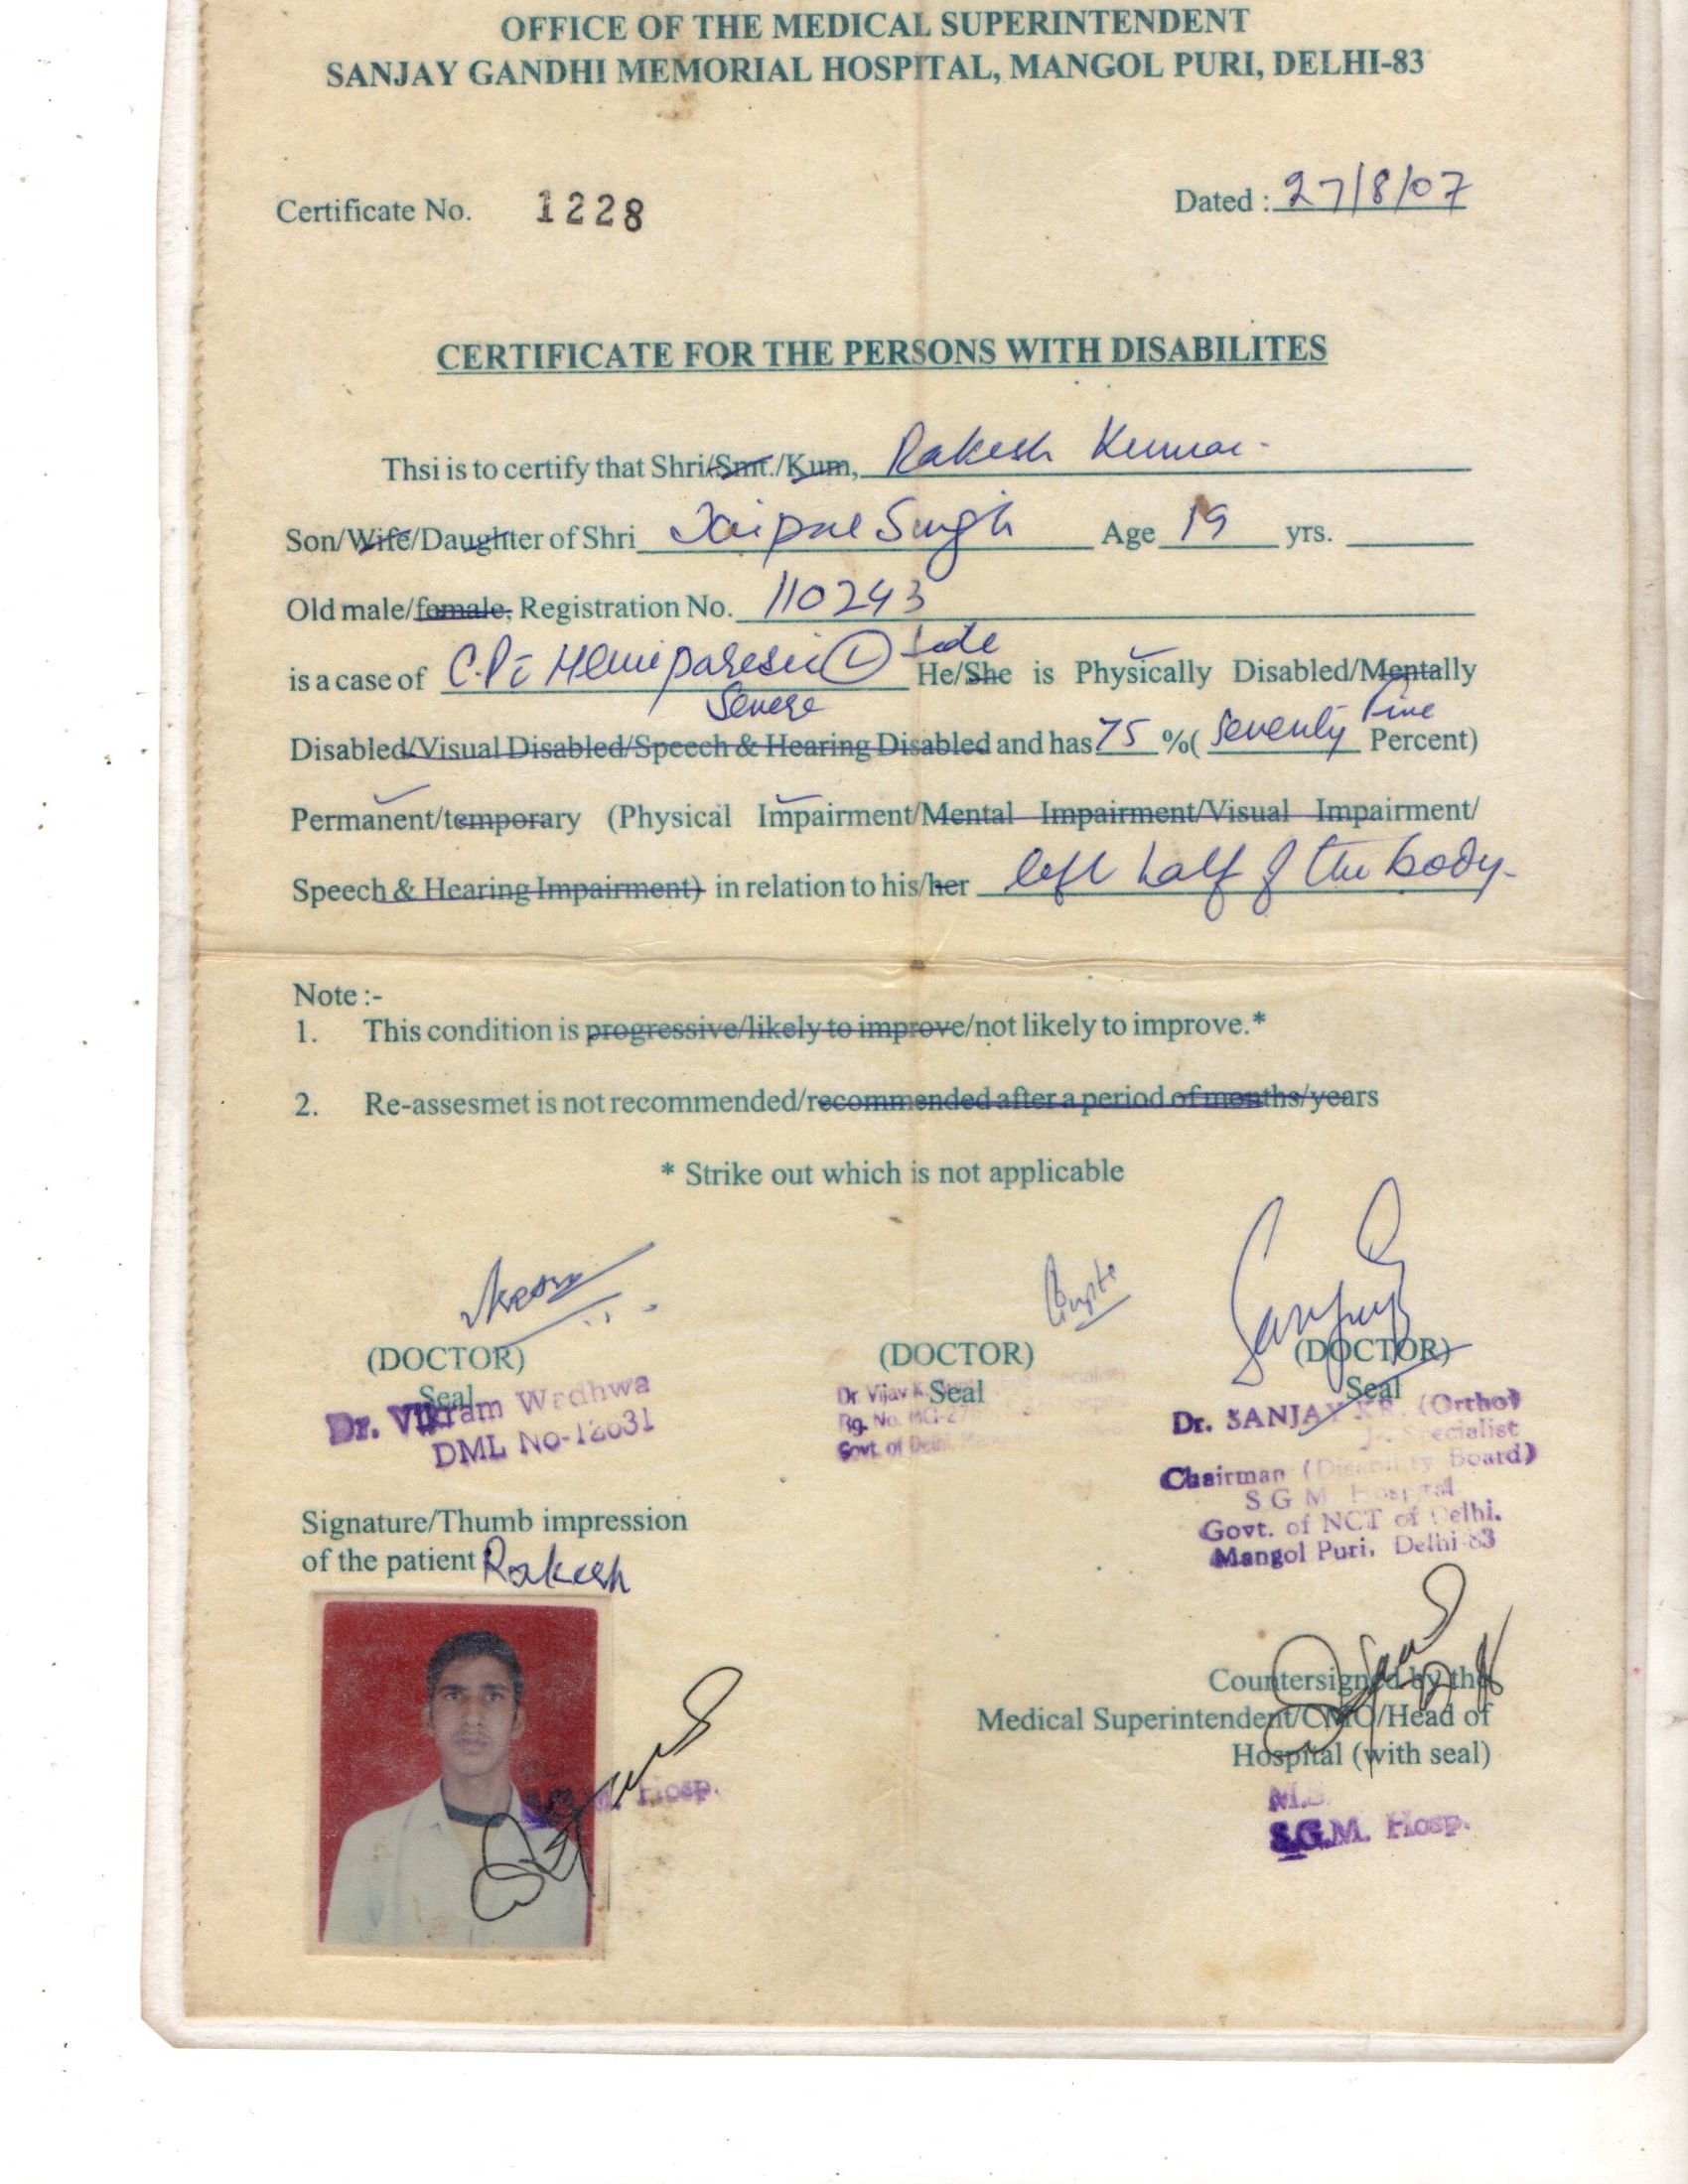 OFFICE OF THE MEDICAL SUPERINTENDENT
SANJAY GANDHI MEMORIAL HOSPITAL, MANGOL PURI, DELHI-83
Certificate No. 1228 Dated : 27/8/07
CERTIFICATE FOR THE PERSONS WITH DISABILITES
Thsi is to certify that Shri/Smt./Kum, Rakesh Kumar
Son/Wife/Daughter of Shri Jaipal Singh Age 19 yrs.
Old male/female, Registration No. 110243
is a case of C.P. Hemiparesis (L) Side He/She is Physically Disabled/Mentally
Severe
Disabled/Visual Disabled/Speech & Hearing Disabled and has 75 %( Seventy Five Percent)
Permanent/temporary (Physical Impairment/Mental Impairment/Visual Impairment/
Speech & Hearing Impairment) in relation to his/her left half of the body.
Note :-
1. This condition is progressive/likely to improve/not likely to improve.*
2. Re-assesmet is not recommended/recommended after a period of months/years
* Strike out which is not applicable
(DOCTOR) (DOCTOR) (DOCTOR)
Seal Seal Seal
Dr. Vikram Wadhwa
DML No-12631
Dr. Vijay K.
Rg. No. MCI-
Govt. of Delhi,
Dr. SANJAY KR. (Ortho)
Specialist
Chairman (Disability Board)
S G M Hospital
Govt. of NCT of Delhi.
Mangol Puri, Delhi-83
Signature/Thumb impression
of the patient Rakesh
Countersigned by the
Medical Superintendent/CMO/Head of
Hospital (with seal)
M. Hosp.
M.S.
S.G.M. Hosp.